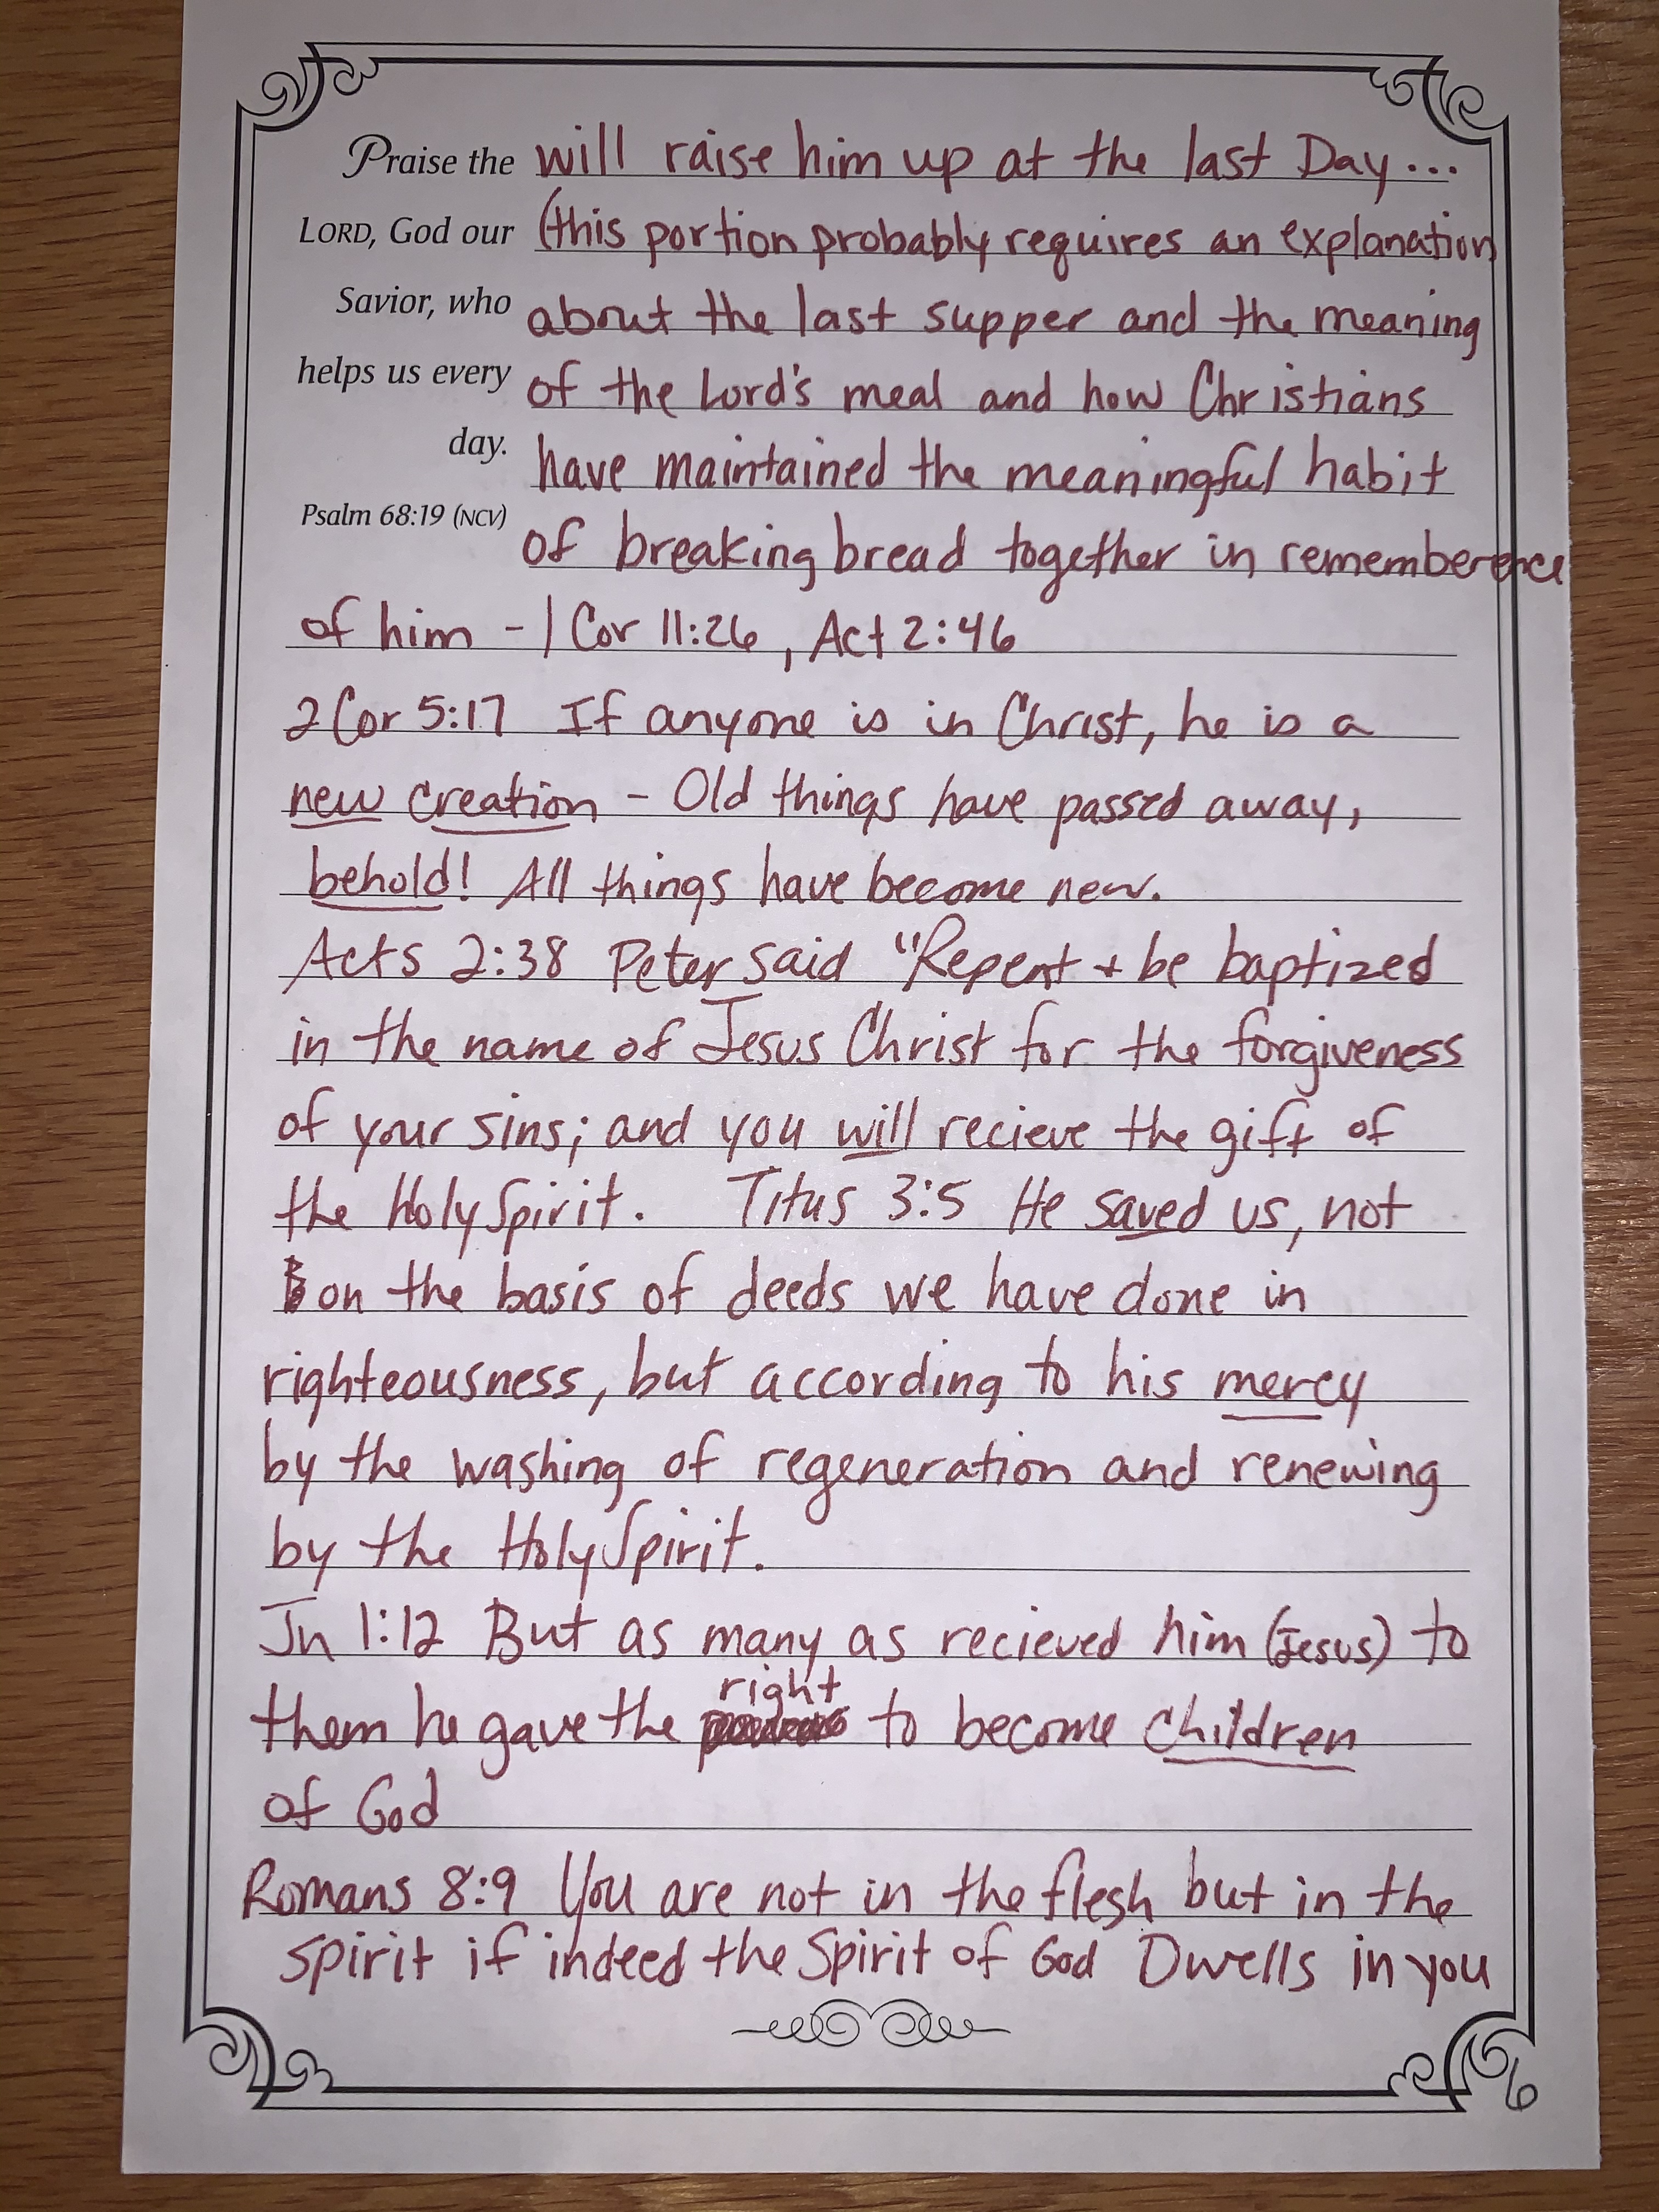 Praise the
LORD, God our
Savior, who
helps us every
day.
Psalm 68:19 (NCV)
will raise him up at the last Day...
(this portion probably requires an explanation
about the last supper and the meaning
of the Lord's meal and how Christians
have maintained the meaningful habit
of breaking bread together in rememberence
of him - 1 Cor 11:26, Act 2:46
2 Cor 5:17 If anyone is in Christ, he is a
new creation - Old things have passed away,
behold! All things have become new.
Acts 2:38 Peter said "Repent + be baptized
in the name of Jesus Christ for the forgiveness
of your sins; and you will recieve the gift of
the Holy Spirit. Titus 3:5 He saved us, not
on the basis of deeds we have done in
righteousness, but according to his mercy
by the washing of regeneration and renewing
by the Holy Spirit.
Jn 1:12 But as many as recieved him (Jesus) to
them he gave the right to become children
of God
Romans 8:9 You are not in the flesh but in the
spirit if indeed the Spirit of God Dwells in you
6